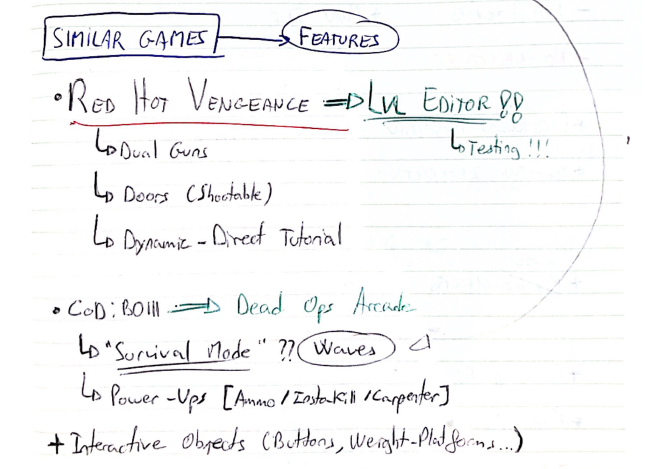 SIMILAR GAMES → FEATURES
• RED HOT VENGEANCE ⇒ LVL EDITOR!!
↳ Dual Guns ↳ Testing!!!
↳ Doors (Shootable)
↳ Dynamic-Direct Tutorial
• CoD:BOIII ⇒ Dead Ops Arcade
↳ "Survival Mode" ?? Waves
↳ Power-Ups [Ammo/InstaKill/Carpenter]
+ Interactive Objects (Buttons, Weight-Platforms...)